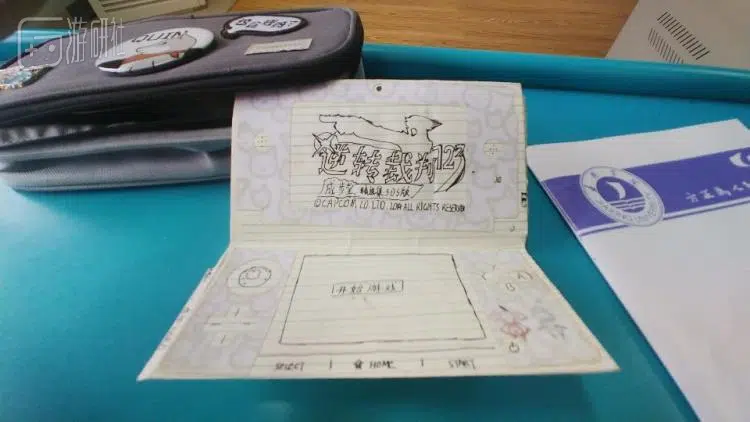 游研社
QUIN
逆转裁判123
成步堂 精选集3DS版
©CAPCOM CO. LTD. 2014 ALL RIGHTS RESERVED
开始游戏
A
B
SELECT HOME START